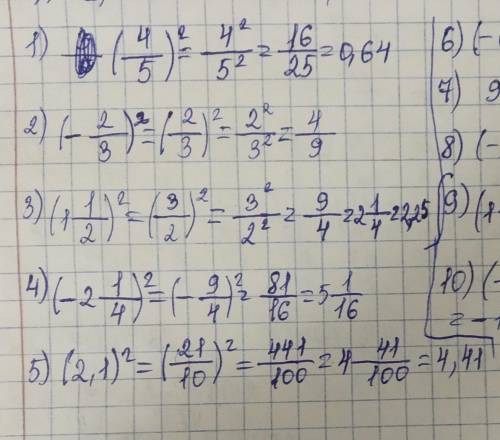 1) (4/5)² = 4²/5² = 16/25 = 0,64
2) (-2/3)² = (2/3)² = 2²/3² = 4/9
3) (1 1/2)² = (3/2)² = 3²/2² = 9/4 = 2 1/4 = 2,25
4) (-2 1/4)² = (-9/4)² = 81/16 = 5 1/16
5) (2,1)² = (21/10)² = 441/100 = 4 41/100 = 4,41
6) (-
7) 9
8) (-
9) (1
10) (-
= -